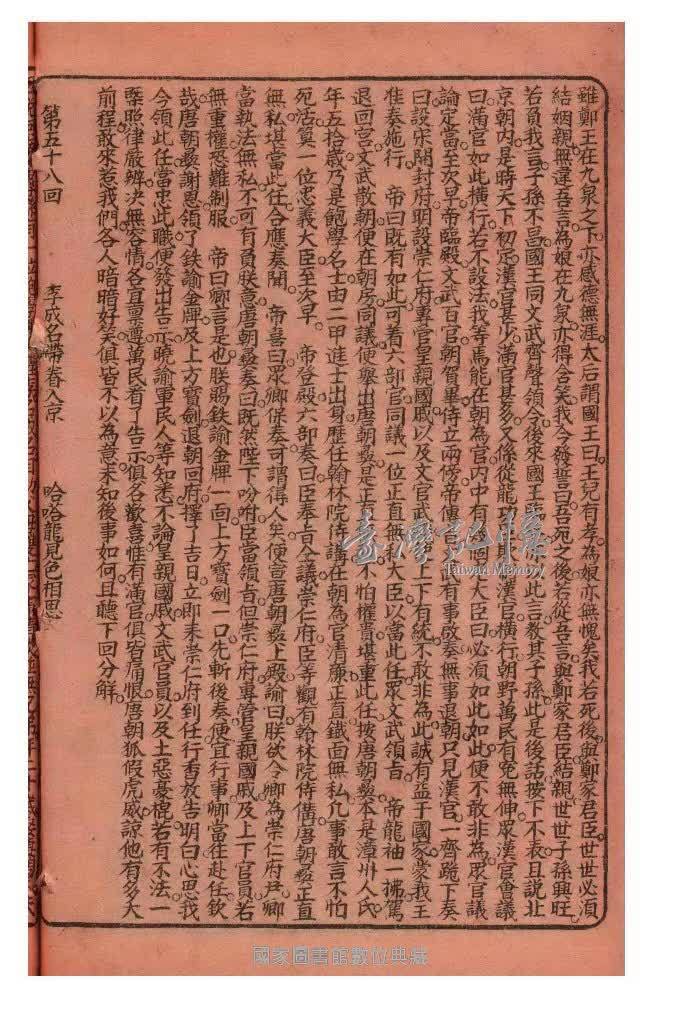 雖鄭王在九泉之下亦感德無涯太后謂國王曰王兒有孝為娘亦無愧矣我若死後與鄭家君臣世世必須
結姻親無違吾言為娘在九泉亦得含笑我今發誓曰吾死之後若從吾言與鄭家君臣結親世世子孫興旺
若負我言子孫不昌國王同文武齊聲領令後來國王此言教其子孫此是後話按下不表且說北
京朝內是時天下初定漢官甚少滿官甚多又係從龍功漢官橫行朝野萬民有冤無伸眾漢官會議
曰滿官如此橫行若不設法我等焉能在朝為官內中有大臣曰必須如此如此便不敢非為眾官議
論定當至次早帝臨殿文武百官朝賀畢侍立兩傍帝傳武有事啟奏無事退朝只見漢官一齊跪下奏
曰設宋開封府明設崇仁府專管皇親國戚以及文官武上下有統不敢非為此誠有益于國家蒙我王
准奏施行 帝曰既有如此可着六部官同議一位正直無私大臣以當此任眾文武領旨 帝龍袖一拂駕
退回宮文武散朝便在朝房同議便舉出唐朝彝是正不怕權貴堪重此任按唐朝彝本是漳州人氏
年五拾歲乃是飽學名士由二甲進士出身歷任翰林院侍講在朝為官清廉正直鐵面無私凢事敢言不怕
死活算一位忠義大臣至次早 帝登殿六部奏曰臣奉旨仝議崇仁府臣等觀有翰林院侍儁唐朝彝正直
無私堪當此任合應奏聞 帝喜曰眾卿保奏可謂得人矣便宣唐朝彝上殿諭曰朕欲令卿為崇仁府尹卿
當執法無私不可有負朕意唐朝彝奏曰既然陛下吩咐臣當領旨但崇仁府專管皇親國戚及上下官員若
無重權恐難制服 帝曰卿言是也朕賜鉄諭金牌一面上方寶劍一口先斬後奏便宜行事卿當往赴任欽
哉唐朝彝謝恩領了鉄諭金牌及上方寶劍退朝回府擇了吉日立即來崇仁府到任行香放告明曰心思我
今領此任當忠此職便發出告示曉諭軍民人等知悉不論皇親國戚文武官員以及土惡憂棍若有不法一
槩照律嚴辨决無容情各宜稟遵萬民看了告示俱各歡喜惟有滿官俱皆扁恨唐朝狐假虎威諒他有多大
前程敢來惹我們各人暗暗好笑俱皆不以為意未知後事如何且聽下回分解
第五十八回 李成名帶眷入京 哈咯龍見色相思
臺灣記憶
Taiwan Memory
國家圖書館數位典藏